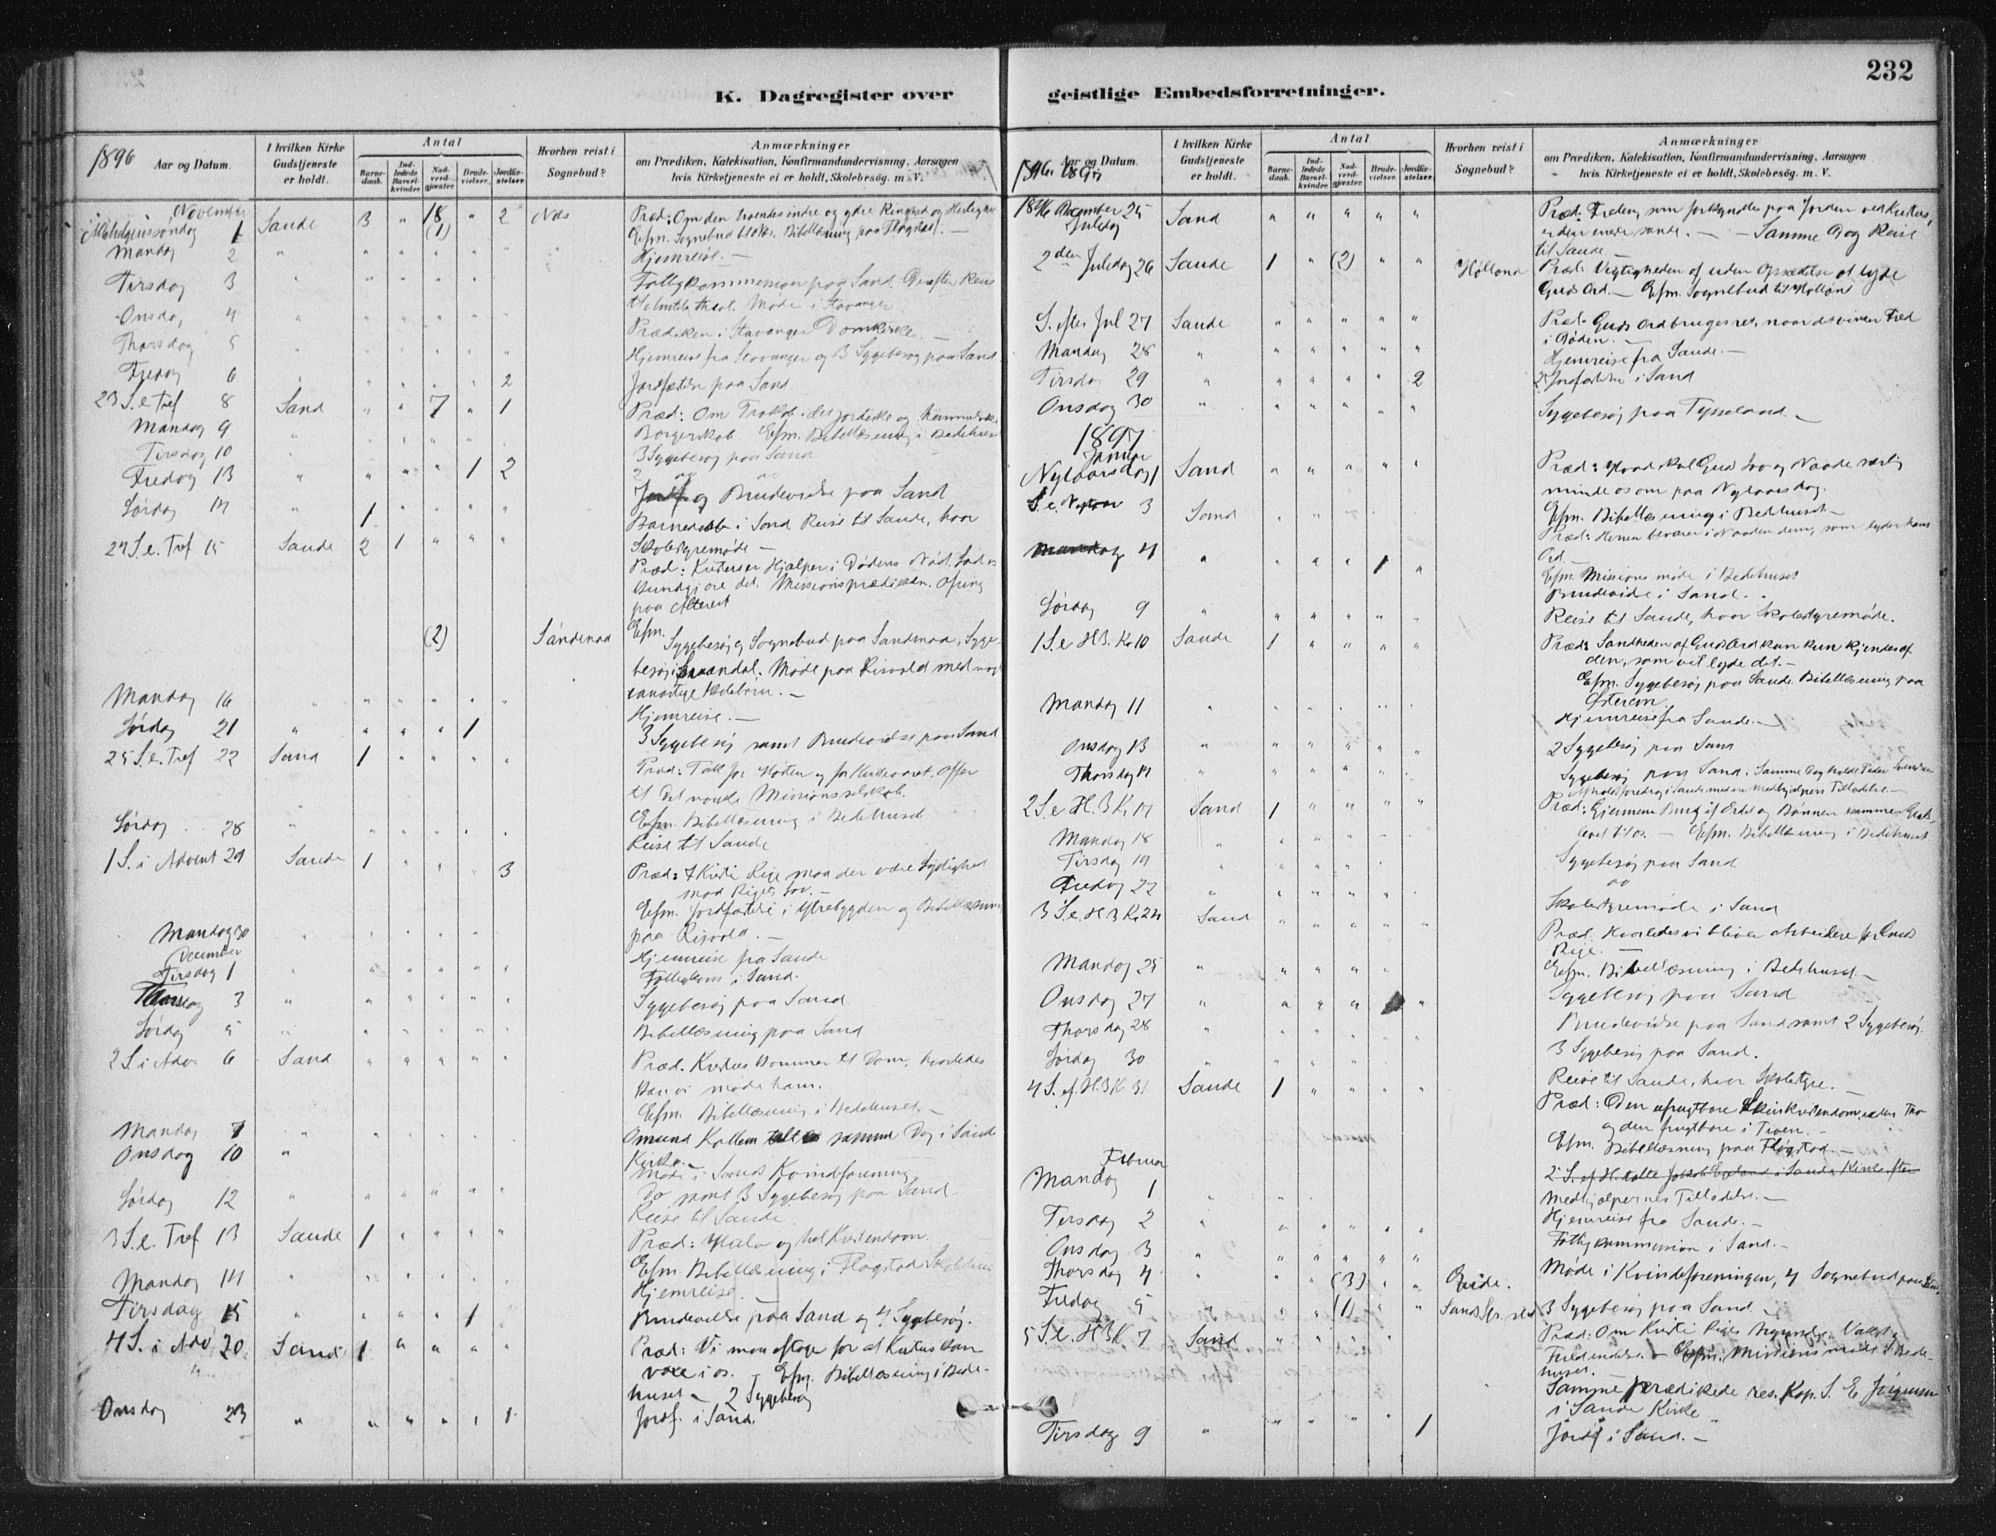 232
K. Dagregister over geistlige Embedsforretninger.
1896 Aar og Datum.
I hvilken Kirke Gudstjeneste er holdt.
Antal
Barnedaab.
Indledede Barselkvinder.
Nadverdgjæster.
Brudevielser.
Jordfæstelser.
Hvorhen reist i Sognebud?
Anmærkninger
om Prædiken, Katekisation, Konfirmandundervisning, Aarsagen
hvis Kirketjeneste ei er holdt, Skolebesøg. m. V.
November
1 Sande 3 " 18 " 2 Næs Præd: Om den troendes indre og ydre Ringhed og Herlighed
(1) Efm. Sognebud til Næs. Bibellæsning paa Fløgstad. —
Mandag 2 " Hjemreise. —
Tirsdag 3 Fattigkommission paa Sand. Derefter Reise
Møde i Stavanger
Onsdag 4 Prædiken i Stavanger Domkirke. —
Thorsdag 5 Hjemreise fra Stavanger og 3 Sygebesøg paa Sand
Fredag 6 2 Jordfæstelse paa Sand
23 S. e Tref 8 Sand " " 7 " 1 Præd: Om Troskab i det jordiske og himmelske
Borgerskab. Efm. Bibellæsning i Bedehuset
Mandag 9
Tirsdag 10 3 Sygebesøg paa Sand
Fredag 13 " " " " 1 2 og Brudevielse paa Sand
Lørdag 14 " 1 Barnedaab i Sand. Reise til Sande, hvor
Skolestyremøde —
24 S. e. Tref 15 Sande 2 1 " " " Præd: Kristus er Hjælper i Dødens Nød. Lad os
kundgjøre det. Missionsprædiken. Ofring
paa Alteret
(2) Sandenaa Efm. Sygebesøg og Sognebud paa Sandenaa, Syge-
besøg i Møde paa Risvold med
Mandag 16 Hjemreise. —
Lørdag 21 " " " " 1 3 Sygebesøg samt Brudevielse paa Sand
25 S. e. Tref 22 Sand 1 " " " " Præd: Tak for Høsten og for Kirkeaaret. Offer
til Det norske Missionsselskab.
Efm. Bibellæsning i Bedehuset
Lørdag 28 Reise til Sande
1 S. i Advent 29 Sande 1 " " " 3 Præd: I Kristi Rige maa der være Lydighed
mod Rigets Lov. —
Efm. Jordfæstelse i Ytrebygden og Bibellæsning
paa Risvold. —
Mandag 30 Hjemreise fra Sande
December
Tirsdag 1 i Sand.
Thorsdag 3 " Sygebesøg paa Sand
Lørdag 5 " Bibellæsning paa Sand
2 S. i Adv. 6 Sand " " " " " Præd. Kristus kommer til Dom, hvorledes
kan vi møde ham.
Efm. Bibellæsning i Bedehuset. —
Mandag 7 Omund Kollem talte samme Dag i Sande
Kirke. —
Onsdag 10 " Møde i Sands Kvindeforening
Do samt 3 Sygebesøg paa Sand
Lørdag 12 " Reise til Sande.
3 S. e. Tref 13 Sande 1 " " " " Præd: Halv og hel Kristendom.
Efm. Bibellæsning i Fløgstad Skolehus
Mandag 14 Hjemreise. —
Tirsdag 15 " " " " 1 Brudevielse paa Sand og 4 Sygebesøg.
4 S. i Adv 20 Sand 1 " " " " Præd: Vi maa aftage for at Kristus kan
voxe i os. — Efm. Bibellæsning i Bede-
huset — 2 Sygebesøg
Onsdag 23 " " " " " 1 Jordf. i Sand.
Aar og Datum.
I hvilken Kirke Gudstjeneste er holdt.
Antal
Barnedaab.
Indledede Barselkvinder.
Nadverdgjæster.
Brudevielser.
Jordfæstelser.
Hvorhen reist i Sognebud?
Anmærkninger
om Prædiken, Katekisation, Konfirmandundervisning, Aarsagen
hvis Kirketjeneste ei er holdt, Skolebesøg. m. V.
1896 December 25 Sand " " " " " Præd: Freden, som forkyndtes paa Jorden ved Kristus,
Juledag er den eneste sande. — — Samme Dag Reise
til Sande —
2den Juledag 26 Sande 1 " (2) " " Hølland Præd: Vigtigheden af uden Opsættelse at lyde
Guds Ord. — Efm. Sognebud til Hølland
S. efter Jul 27 Sande " " " " " Præd. Guds Ord bruges ret, naar det vinder Fred
i Døden. —
Mandag 28 " Hjemreise fra Sande. —
Tirsdag 29 " " " " " 2 2 Jordfæstelse i Sand
Onsdag 30 " Sygebesøg paa Tysseland —
1897
Januar
Nytaarsdag 1 Sand " " " " " Præd: Hvad skal Guds Lov og Naade særlig
minde os om paa Nytaarsdag.
Efm. Bibellæsning i Bedehuset —
S. e. Nytaar 3 Sand Præd: Herren bevarer i Naaden den, som lyder hans
Ord. —
Efm. Missionsmøde i Bedehuset
Mandag 4 " " " " 1 " Brudevielse i Sand. —
Lørdag 9 " Reise til Sande, hvor Skolestyremøde.
1 S. e H. 3. K. 10 Sande 1 " " " " Præd: Sandheden af Guds Ord kan kun kjendes af
den, som vil lyde det. —
Efm. Sygebesøg paa Sande. Bibellæsning paa
Mandag 11 " Hjemreise fra Sande. —
Onsdag 13 " 2 Sygebesøg paa Sand
Thorsdag 14 " Sygebesøg paa Sand. Samme Dag holdt Peder Svendsen
Foredrag i Sande med Medhjælpers Tilladelse. —
2 S. e H. 3. K. 17 Sand 1 " " " " Præd: Gjennem Brug af Ordet og Bønnen kommer Guds
til os. — Efm. Bibellæsning i Bedehuset
Mandag 18 Sygebesøg paa Sand
Tirsdag 19
Fredag 22 Skolestyremøde i Sand
3 S. e. H 3 K. 24 Sand Præd. Hvorledes vi bliver Arbeidere for Guds
Rige. —
Efm. Bibellæsning i Bedehuset —
Mandag 25 " Sygebesøg paa Sand
Onsdag 27 " Brudevielse paa Sand samt 2 Sygebesøg.
Thorsdag 28 " 3 Sygebesøg paa Sand.
Lørdag 30 " Reise til Sande, hvor Skolestyre. —
4 S. ef. H.3.K. 31 Sande 1 " " " " Præd: Den ufrugtbare Skinkristendom uden Tro
og den frugtbare i Troen. —
Efm. Bibellæsning paa Fløgstad. —
2 S. ef. H. talte Jakob i Sande Kirke efter
Medhjælpernes Tilladelse. —
Februar
Mandag 1 Hjemreise fra Sande. —
Tirsdag 2 Fattigkommission i Sand. —
Onsdag 3
Thorsdag 4 " " (3) " " Eide. Møde i Kvindeforeningen, 4 Sognebud paa
Fredag 5 " " (1) " " 3 Sygebesøg paa Sand. —
5 S. e. H3K 7 Sand " " " " " Præd: Om Kristi Riges Begyndelse, Vækst og
Fuldendelse. — Efm. Missionsmøde i Bede-
huset.
Samme prædikede res. Kap. S. E. Jørgensen
i Sande Kirke
Tirsdag 9 " " " " " 1 Jordf i Sand. —